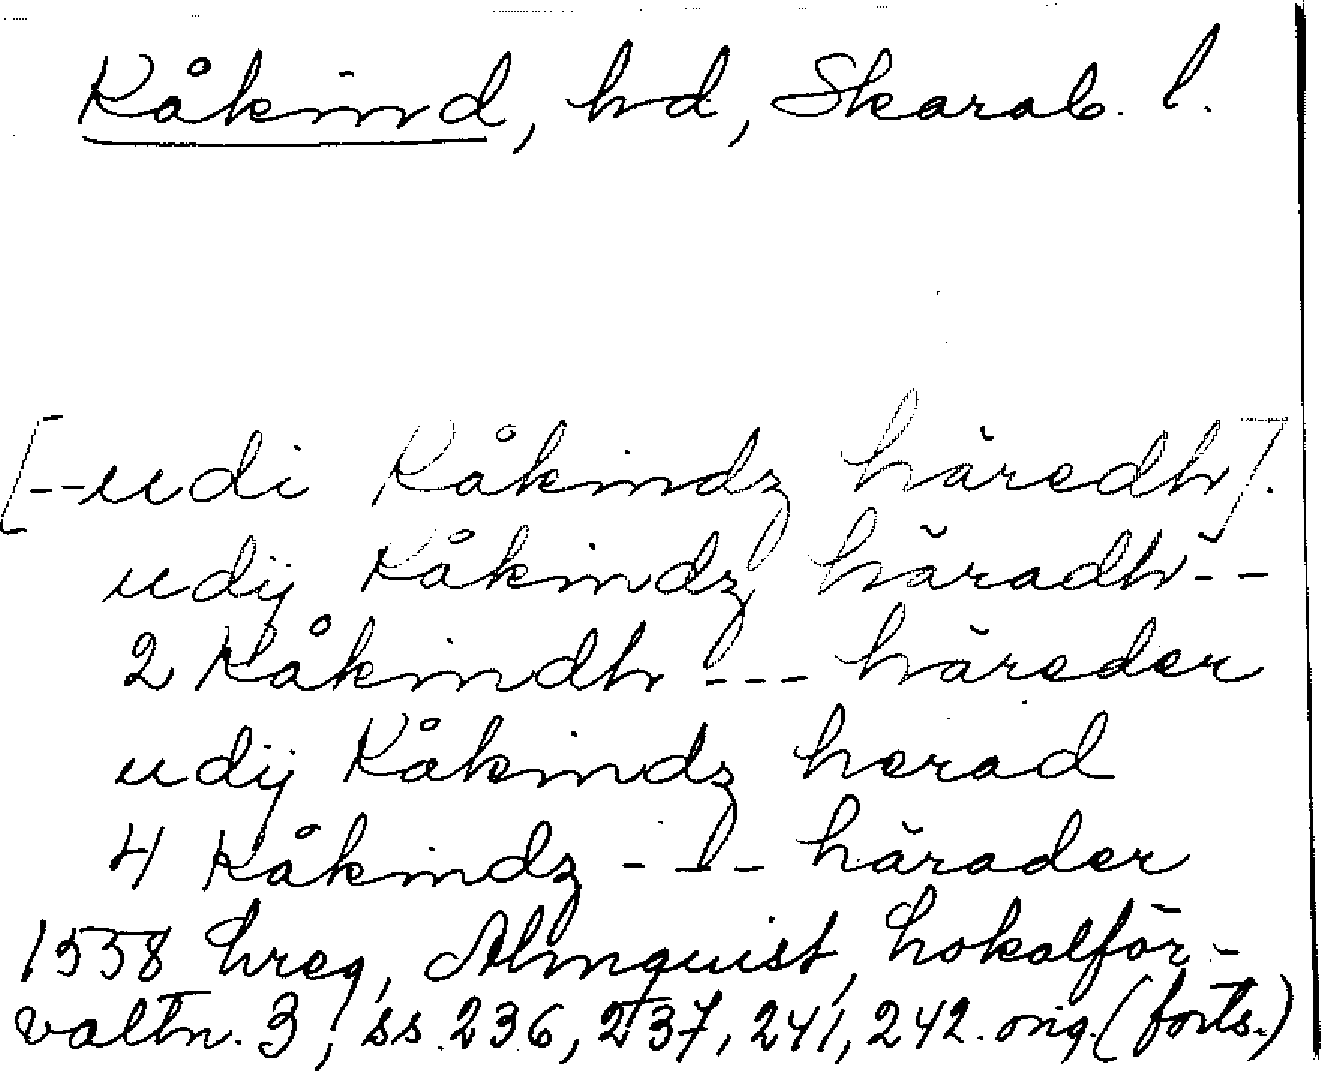 Kåkind, hd, Skarab. l.
[--udi Kåkindz häredh].
udij Kåkindz häradh--
2 Kåkindh --- häreder
udij Kåkindz herad
4 Kåkindz --- härader
1558 hreg, Almquist, Lokalför-
valtn. 3, ss. 236, 237, 241, 242. orig. (forts.)